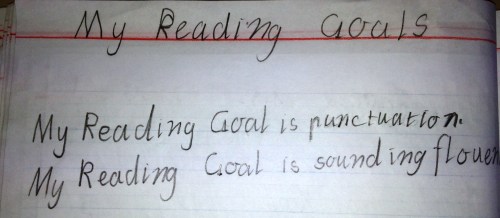 My Reading Goals
My Reading Goal is punctuation.
My Reading Goal is sounding flouen